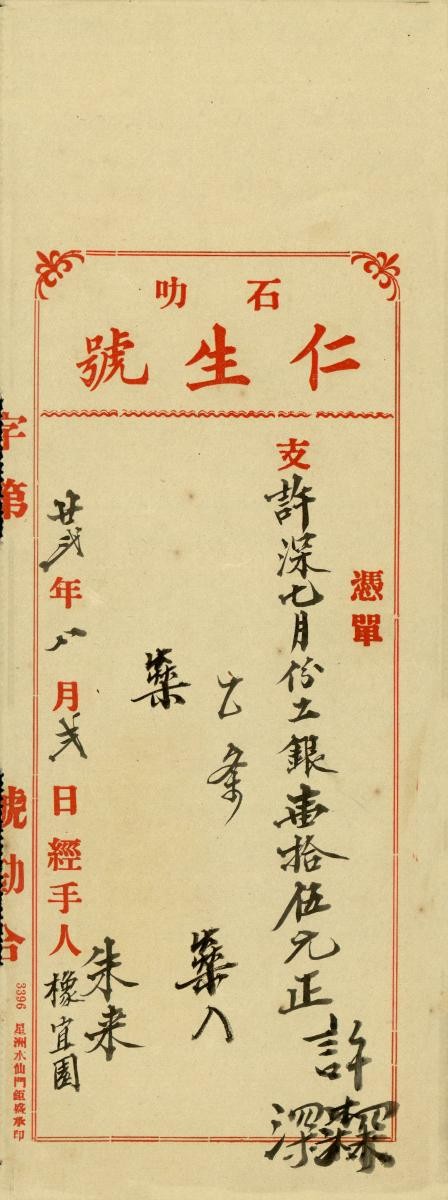 石叻
仁生號
憑單
支許深七月份工銀壹拾伍元正
許深
廿弍年八月弍日經手人
朱来
橡宜園
字第
號勘合
3396 星洲水仙門鉅盛承印